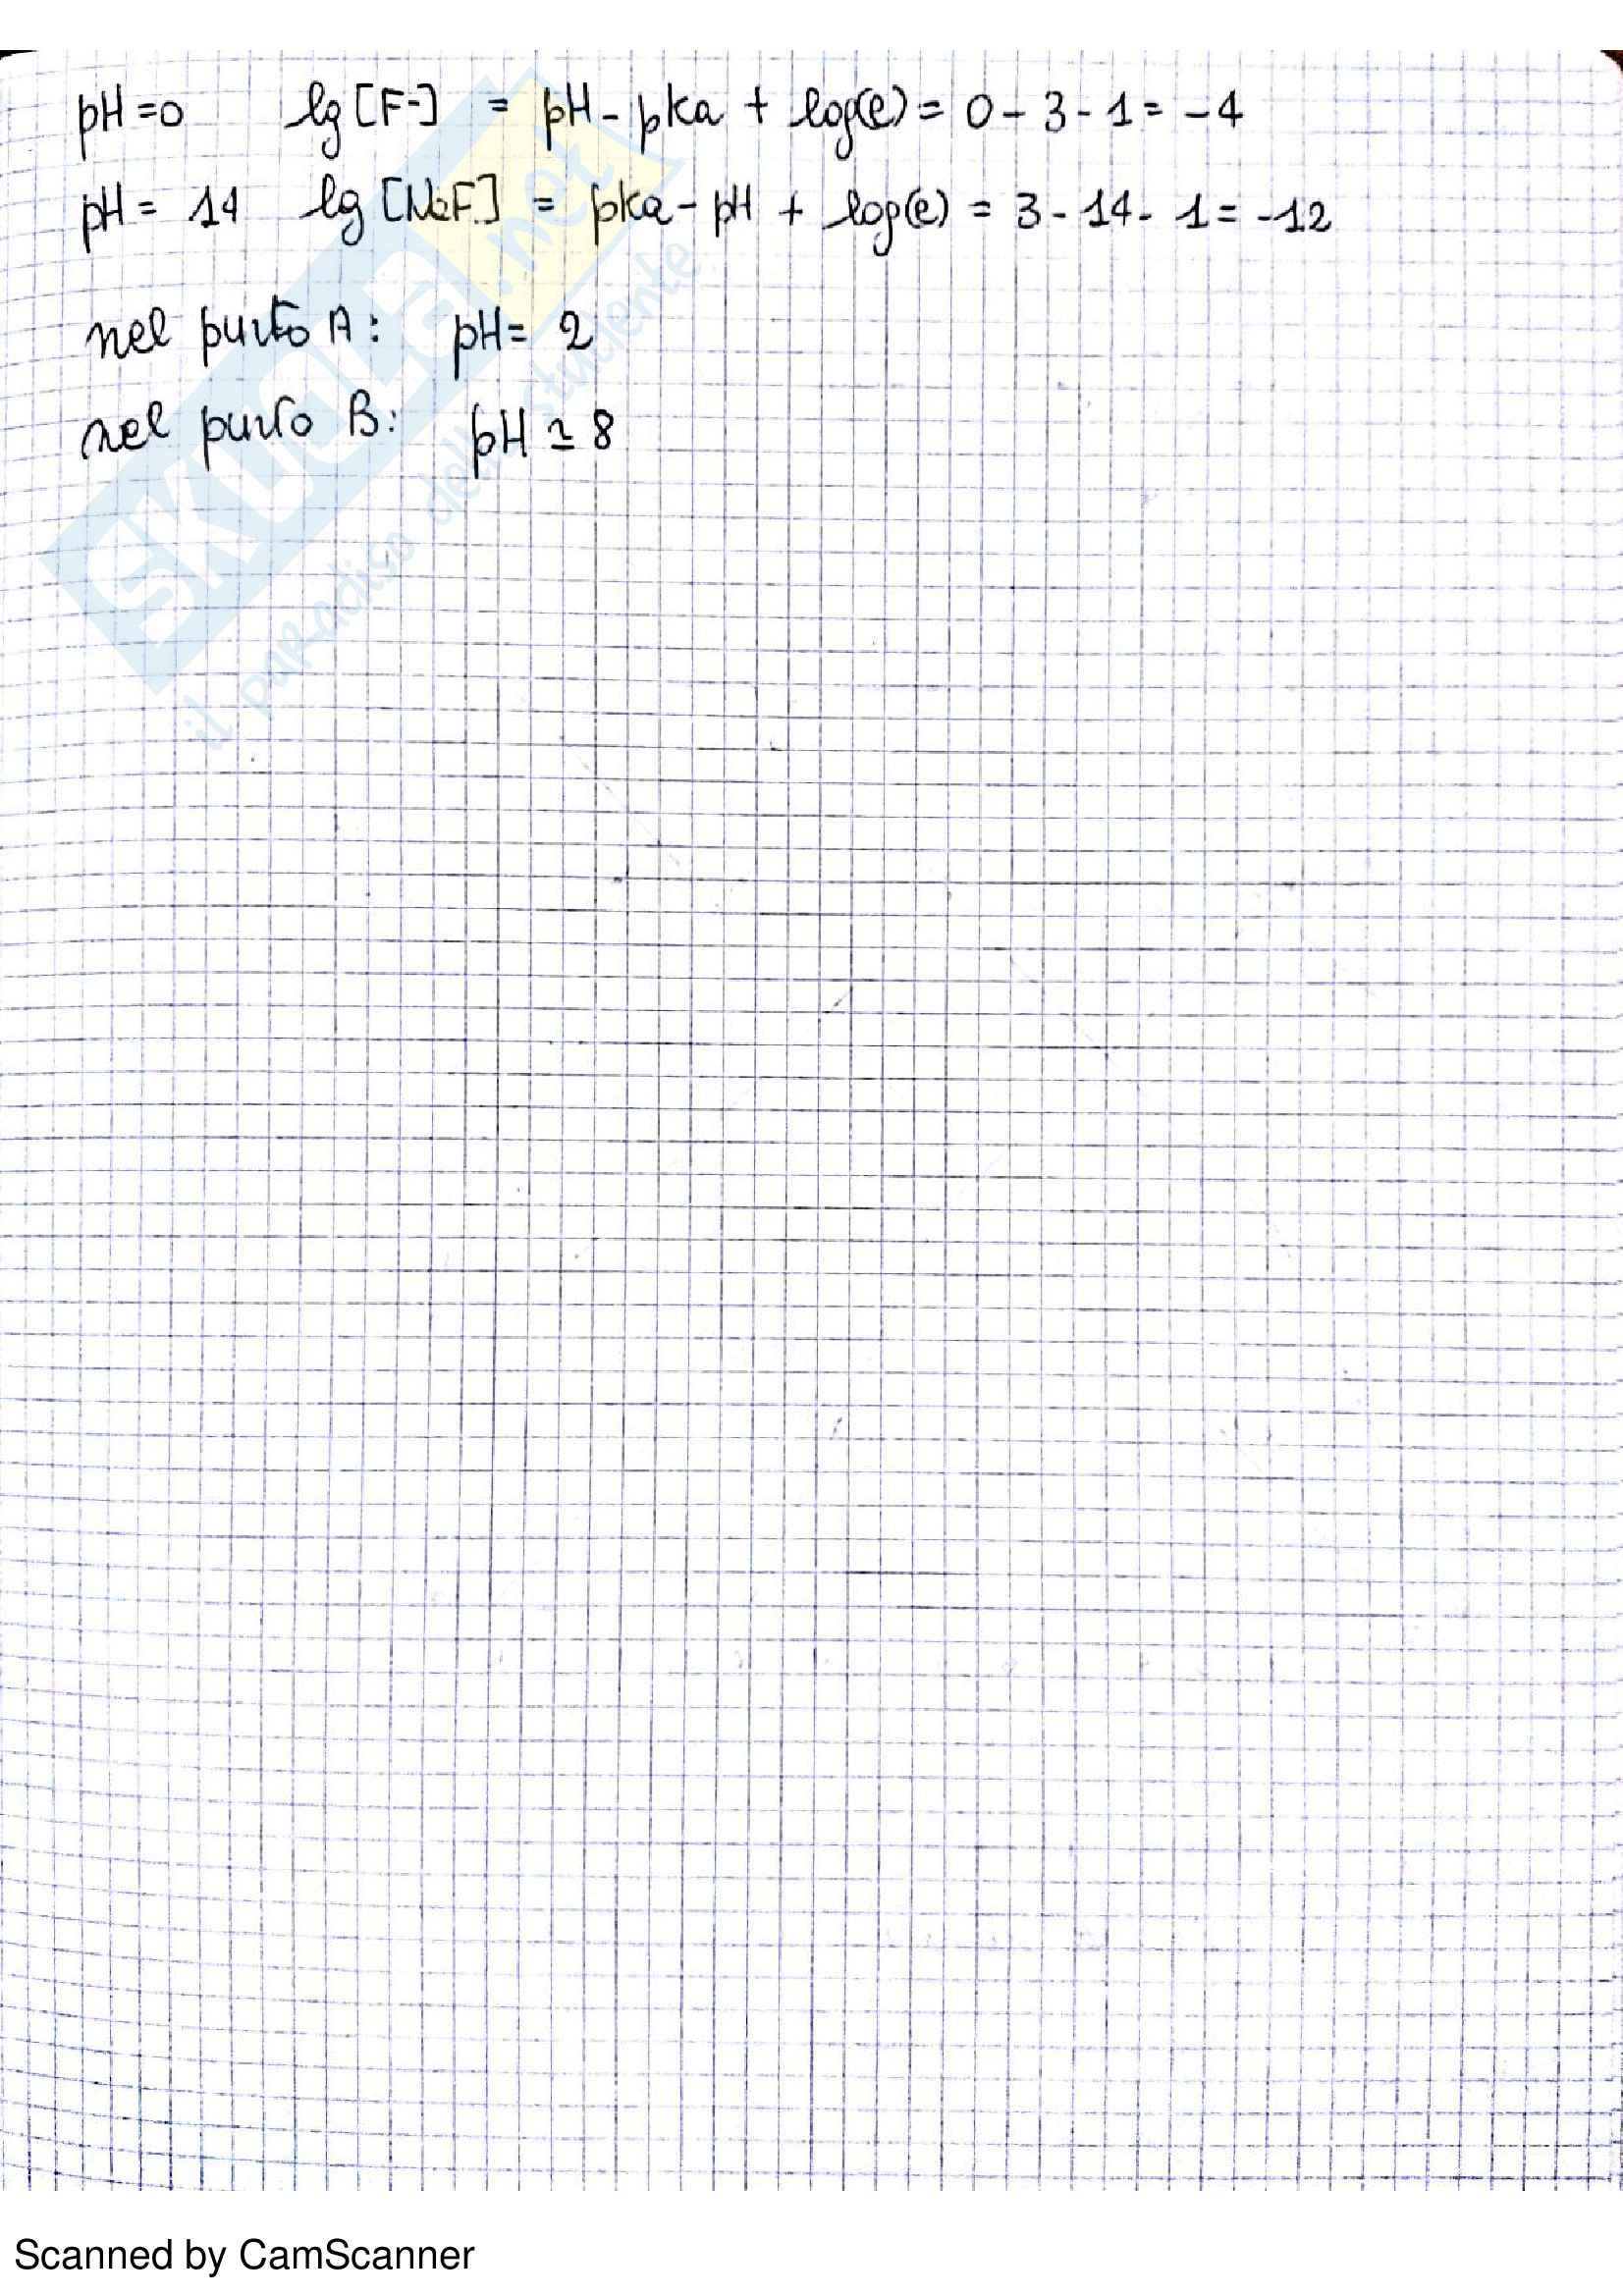 pH=0 lg [F-] = pH - pka + log(e) = 0 - 3 - 1 = -4
pH = 14 lg [NaF] = pka - pH + log(e) = 3 - 14 - 1 = -12
nel punto A: pH= 2
nel punto B: pH ≃ 8
SKUOLA.net
il paradiso dello studente
Scanned by CamScanner